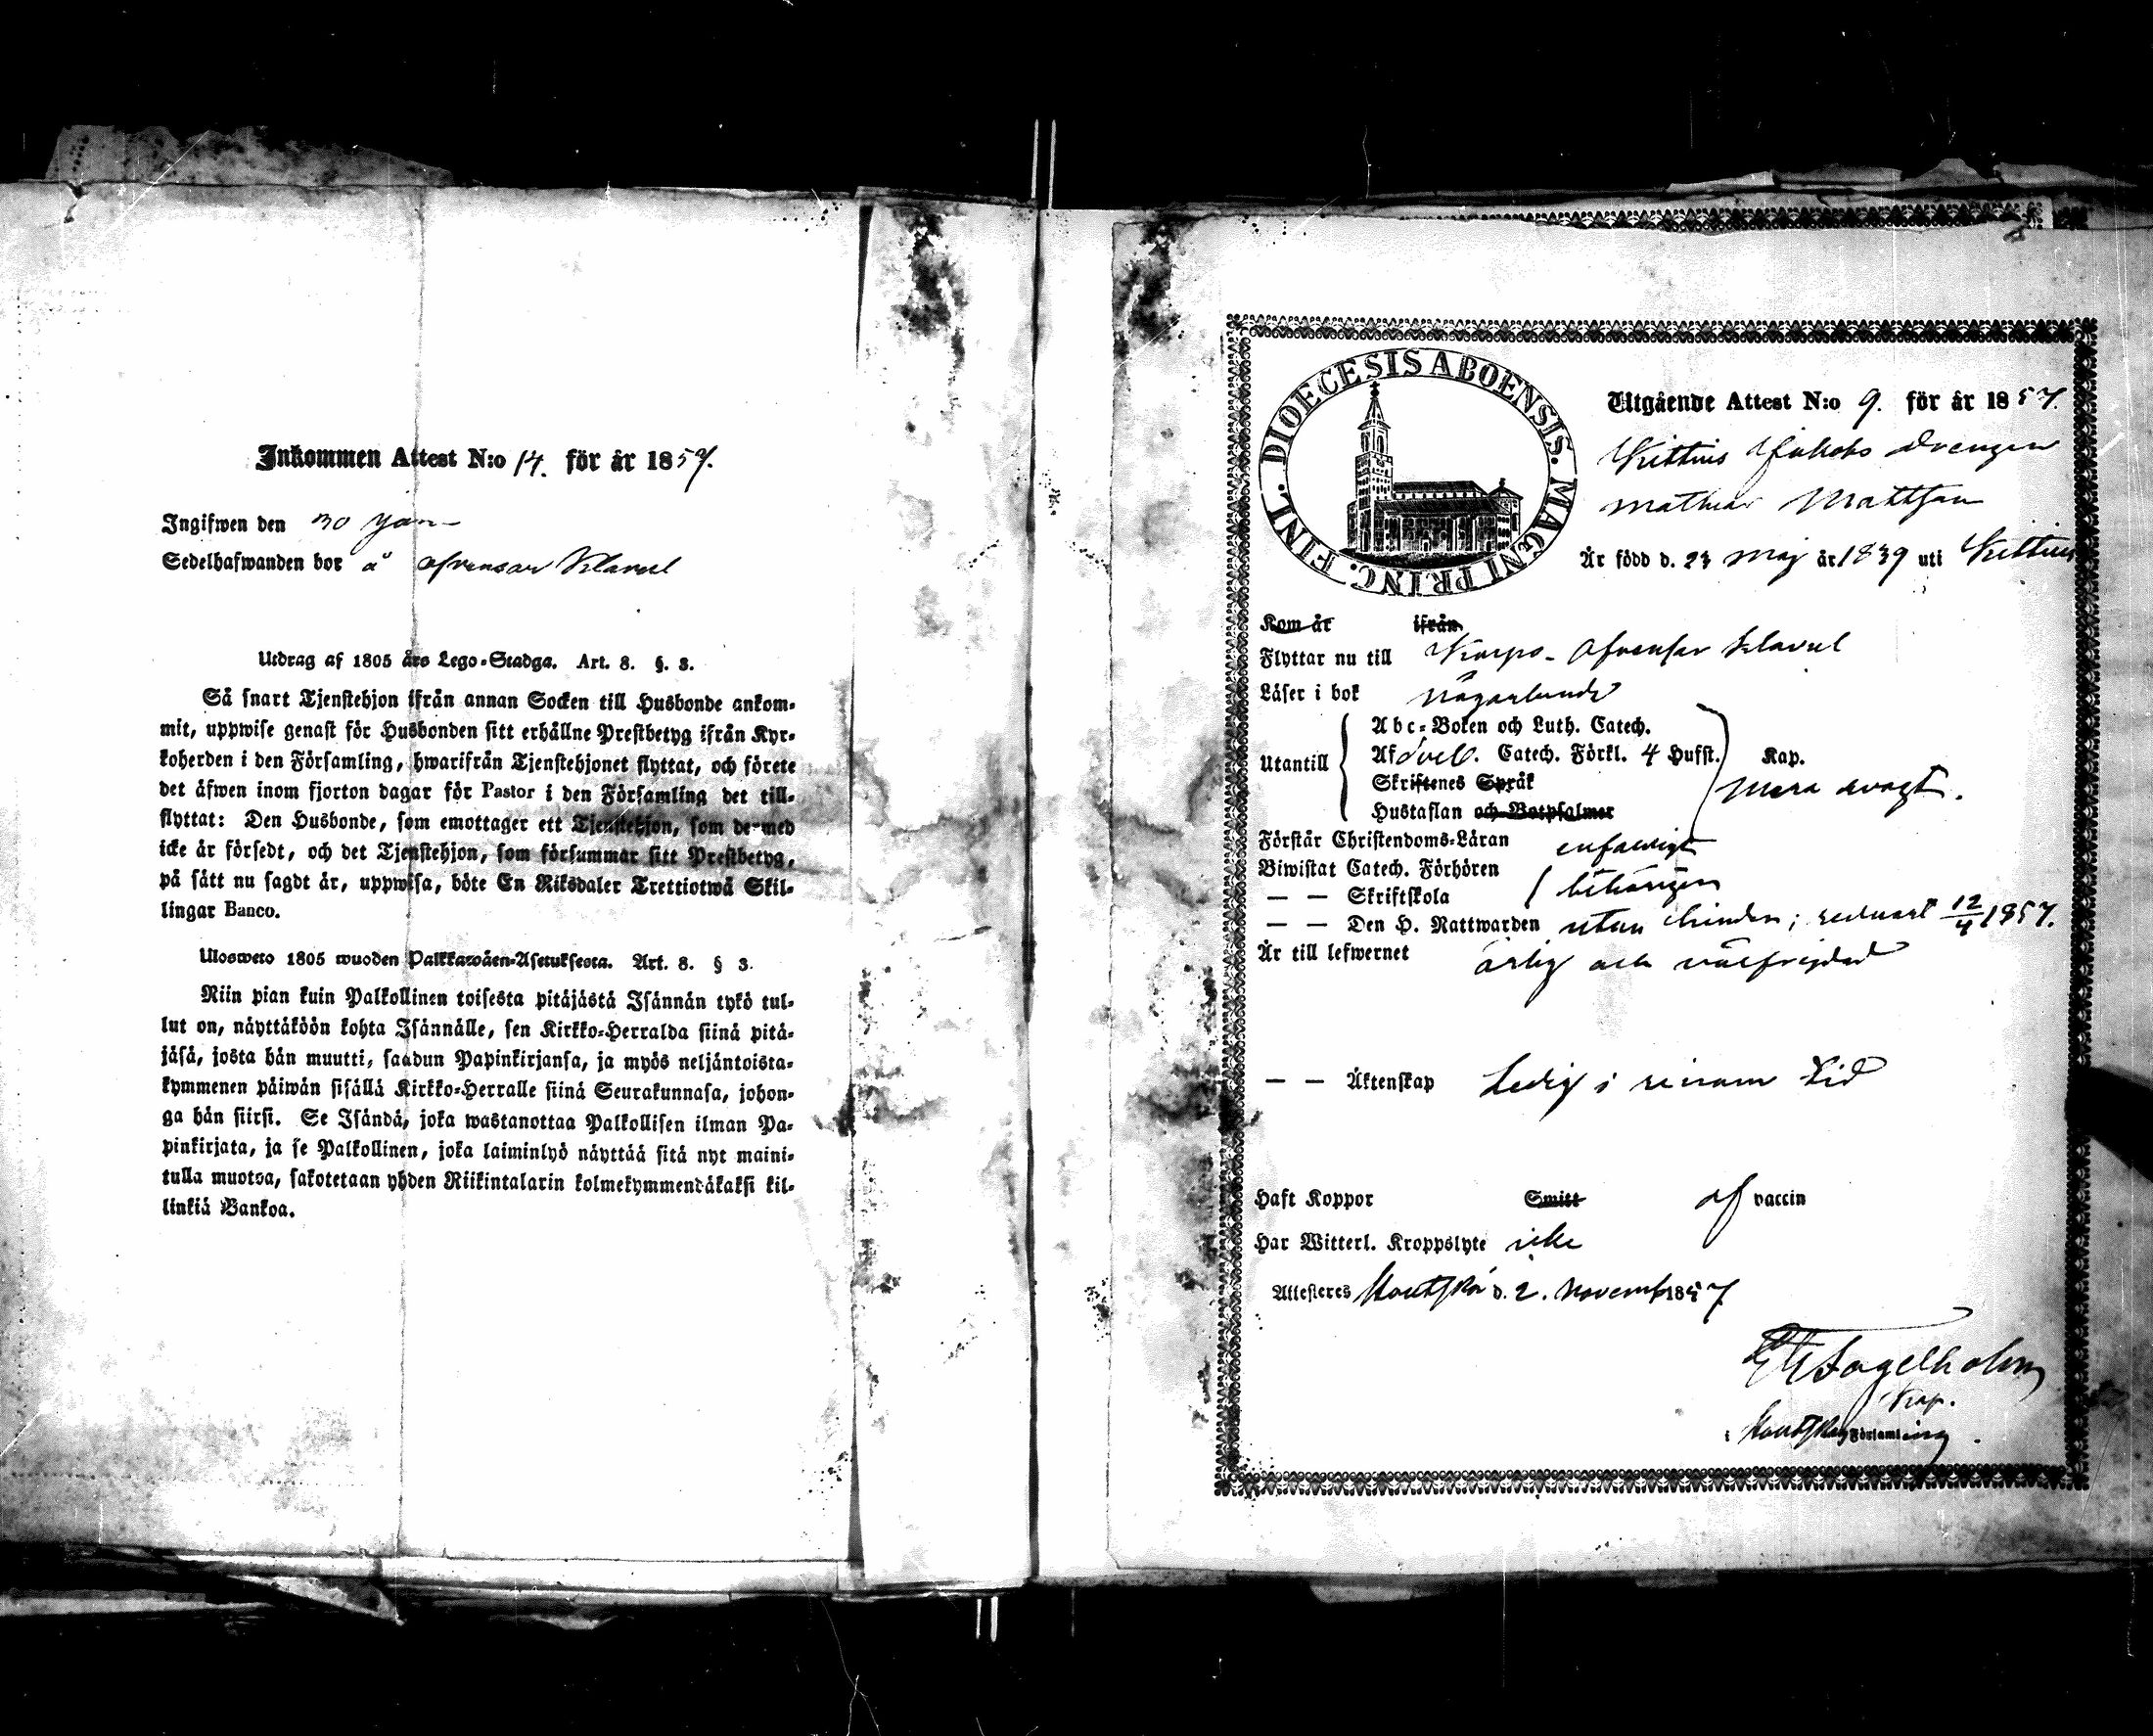 Inkommen Attest N:o 14. för år 1859.
Ingifwen den 30 Jan
Sedelhafwanden bor å Ofvensor Klavul
Utdrag af 1805 års Lego-Stadga. Art. 8. §. 3.
Så snart Tjenstehjon ifrån annan Socken till Husbonde ankom-
mit, uppwise genast för Husbonden sitt erhållne Prestbetyg ifrån Kyr-
koherden i den Församling, hwarifrån Tjenstehjonet flyttat, och förete
det äfwen inom fjorton dagar för Pastor i den Församling det till-
flyttat: Den Husbonde, som emottager ett Tjenstehjon, som dermed
icke är försedt, och det Tjenstehjon, som försummar sitt Prestbetyg,
på sätt nu sagdt är, uppwisa, böte En Riksdaler Trettiotwå Skil-
lingar Banco.
Ulosweto 1805 wuoden Palkkawäen-Asetuksesta. Art. 8. § 3.
Niin pian kuin Palkollinen toisesta pitäjästä Isännän tykö tul-
lut on, näyttäköön kohta Isännälle, sen Kirkko-Herralda siinä pitä-
jäsä, josta hän muutti, saadun Papinkirjansa, ja myös neljäntoista-
kymmenen päiwän sisällä Kirkko-Herralle siinä Seurakunnasa, johon-
ga hän siirsi. Se Isändä, joka wastanottaa Palkollisen ilman Pa-
pinkirjata, ja se Palkollinen, joka laiminlyö näyttää sitä nyt maini-
tulla muotoa, sakotetaan yhden Riikintalarin kolmekymmendäkaksi kil-
linkiä Bankoa.
DIOECESIS ABOENSIS. MAGNI PRINC. FINL.
Utgående Attest N:o 9. för år 1857.
Kittuis Jakobs Drengen
Mathias Mattsson
Är född d. 23 Maj år 1839 uti Kittuis
Kom år ifrån
Flyttar nu till Korpo - Ofvensor Klavul
Läser i bok någorlunda
Utantill
Abc-Boken och Luth. Catech.
Af Sveb. Catech. Förkl. 4 Hufst. Kap.
Skriftenes Språk
Mera svagt.
Hustaflan och Botpsalmer
Förstår Christendoms-Läran enfaldigt
Biwistat Catech. Förhören
— — Skriftskola behörigen
— — Den H. Nattwarden utan hinder; sednast 12/4 1857.
Är till lefwernet ärlig och välfrejdad
— — Äktenskap Ledig i rinom tid
Haft Koppor Smitt af vaccin
Har Witterl. Kroppslyte icke
Attesteres Houtskär d. 2. Novemb 1857
Fagelholm
Kap.
i Houtskär Församling.